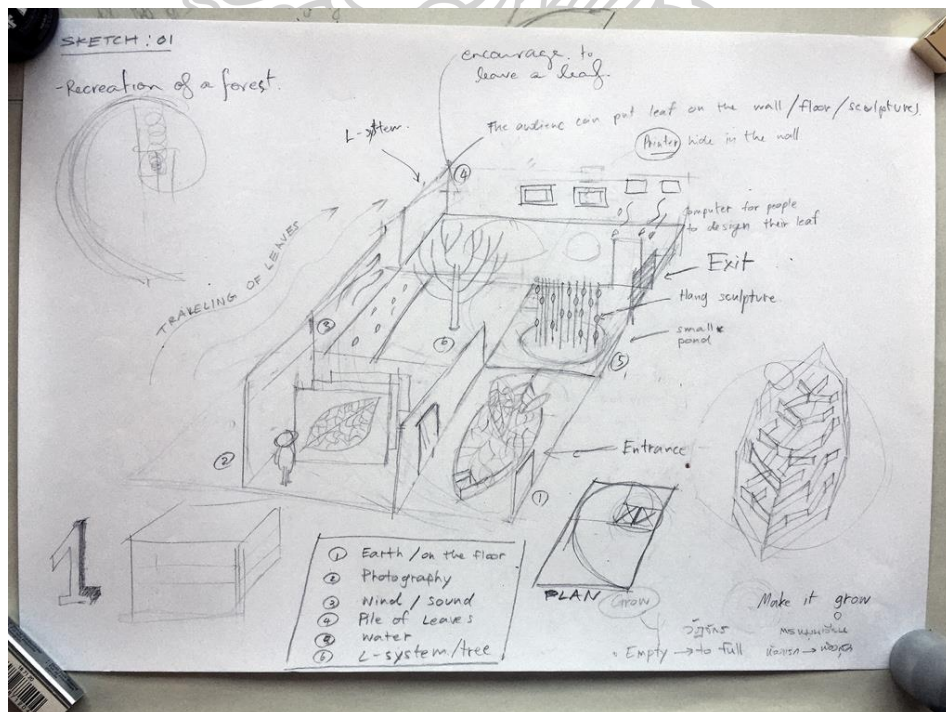 SKETCH : 01
-Recreation of a forest.
encourage to
leave a leaf.
L-system.
The audience can put leaf on the wall/floor/sculptures.
Printer hide in the wall
④
computer for people
to design their leaf
Exit
TRAVELING OF LEAVES
Hang sculpture
③
small
pond
⑥
⑤
Entrance
②
①
1
① Earth / on the floor
② Photography
③ Wind / sound
④ Pile of Leaves
⑤ water
⑥ L-system/tree
PLAN
Grow
Make it grow
วัฏจักร
Empty → to full